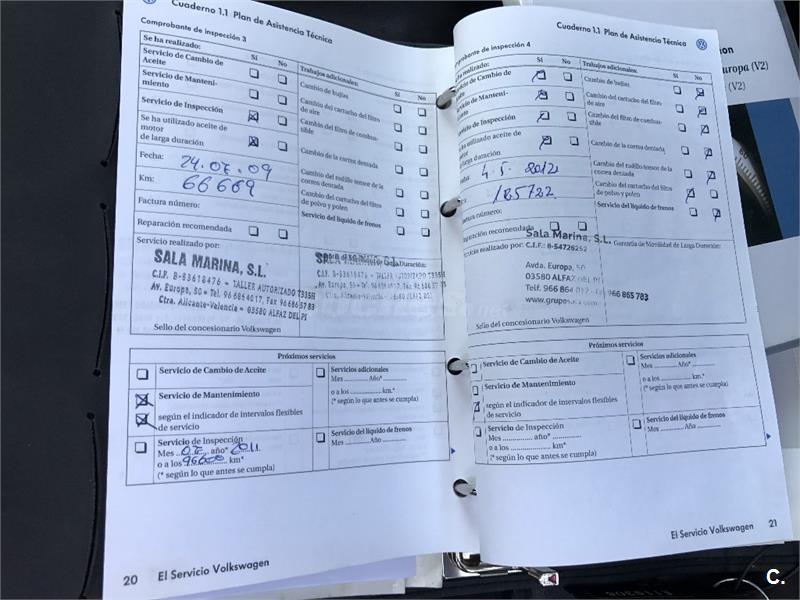 Cuaderno 1.1 Plan de Asistencia Técnica
Comprobante de inspección 3
Se ha realizado:
Sí No
Trabajos adicionales:
Sí No
Servicio de Cambio de
Aceite
Cambio de bujías
Servicio de Manteni-
miento
Cambio del cartucho del filtro
de aire
Servicio de Inspección
Cambio del filtro de combus-
tible
Se ha utilizado aceite de
motor
de larga duración
Cambio de la correa dentada
Fecha:
24.07.09
Cambio del rodillo tensor de la
correa dentada
Km:
66669
Cambio del cartucho del filtro
de polvo y polen
Factura número:
Servicio del líquido de frenos
Reparación recomendada
Servicio realizado por:
Larga Duración:
SALA MARINA, S.L.
C.I.F. B-83618476 - TALLER AUTORIZADO T335H
Av. Europa, 50 - Tel. 96 686 40 17, Fax 96 686 57 83
Ctra. Alicante-Valencia - 03580 ALFAZ DEL PI
Sello del concesionario Volkswagen
Próximos servicios
Servicio de Cambio de Aceite
Servicios adicionales
Mes ........ Año* ........
Servicio de Mantenimiento
o a los ............ km.*
(* según lo que antes se cumpla)
según el indicador de intervalos flexibles
de servicio
Servicio de Inspección
Mes 07 año* 2011
o a los 96600 km*
(* según lo que antes se cumpla)
Servicio del líquido de frenos
Mes ........ Año ........
20 El Servicio Volkswagen
Cuaderno 1.1 Plan de Asistencia Técnica
probante de inspección 4
ha realizado:
Sí No
Trabajos adicionales:
Sí No
de Cambio de
Cambio de bujías
de Manteni-
Cambio del cartucho del filtro
de aire
de Inspección
Cambio del filtro de combus-
tible
utilizado aceite de
larga duración
Cambio de la correa dentada
4.5.2012
Cambio del rodillo tensor de la
correa dentada
185722
Cambio del cartucho del filtro
de polvo y polen
número:
Servicio del líquido de frenos
recomendada
realizado por:
Sala Marina, S.L.
C.I.F.: B-54726252
Garantía de Movilidad de Larga Duración:
Avda. Europa, 50
03580 ALFAZ DEL PI
Telf. 966 864 017 - 966 865 783
Sello del concesionario Volkswagen
Próximos servicios
Servicio de Cambio de Aceite
Servicios adicionales
Mes ........ Año* ........
Servicio de Mantenimiento
o a los ............ km.*
(* según lo que antes se cumpla)
según el indicador de intervalos flexibles
de servicio
Servicio de Inspección
Mes ............ año* ............
o a los ................ km*
(* según lo que antes se cumpla)
Servicio del líquido de frenos
Mes ........ Año ........
El Servicio Volkswagen 21
uropa (V2)
(V2)
C.